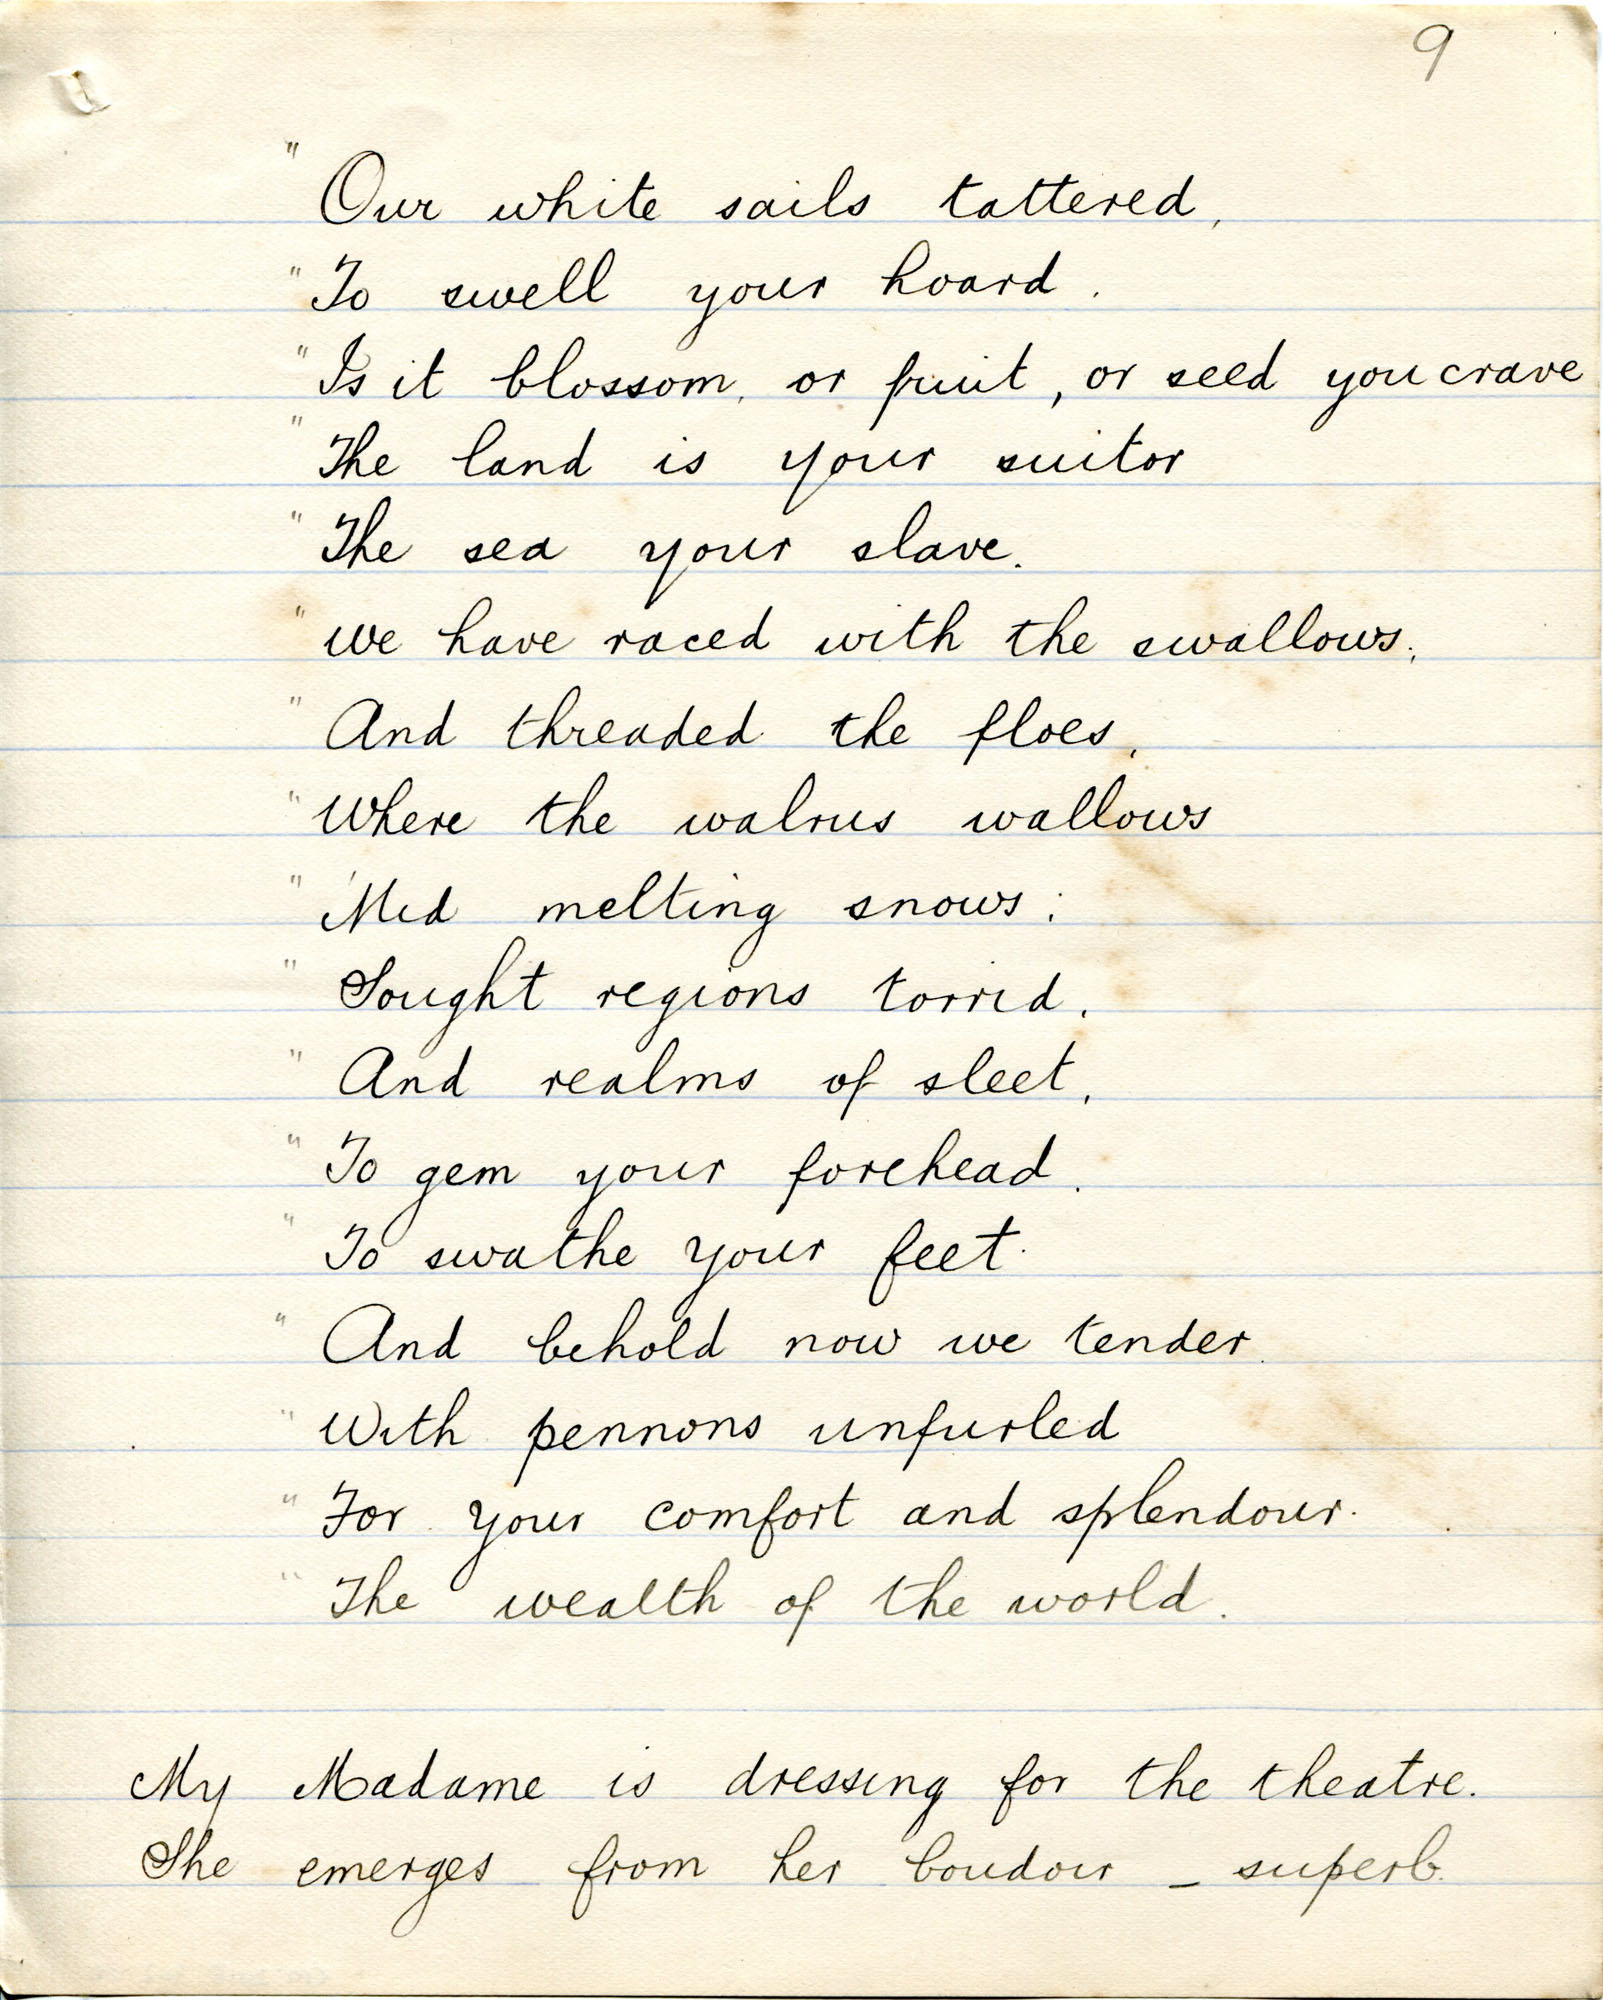 9
" Our white sails tattered,
" To swell your hoard.
" Is it blossom, or fruit, or seed you crave
" The land is your suitor
" The sea your slave.
" We have raced with the swallows,
" And threaded the floes,
" Where the walrus wallows
" 'Mid melting snows:
" Sought regions torrid,
" And realms of sleet,
" To gem your forehead.
" To swathe your feet.
" And behold now we tender.
" With pennons unfurled
" For your comfort and splendour.
" The wealth of the world.
My Madame is dressing for the theatre.
She emerges from her boudoir _ superb.